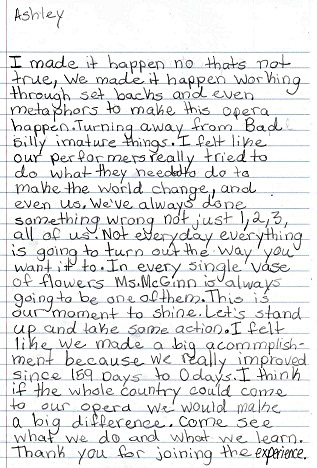 Ashley
I made it happen no thats not
true, we made it happen working
through set backs and even
metaphors to make this opera
happen. Turning away from Bad
silly imature things. I felt like
our performers really tried to
do what they needed to do to
make the world change, and
even us. We've always done
something wrong not just 1, 2, 3,
all of us. Not everyday everything
is going to turn out the way you
want it to. In every single vase
of flowers Ms. McGinn is always
going to be one of them. This is
our moment to shine. Let's stand
up and take some action. I felt
like we made a big acommplish-
ment because we really improved
since 159 Days to 0 days. I think
if the whole country could come
to our opera we would make
a big difference. Come see
what we do and what we learn.
Thank you for joining the experience.